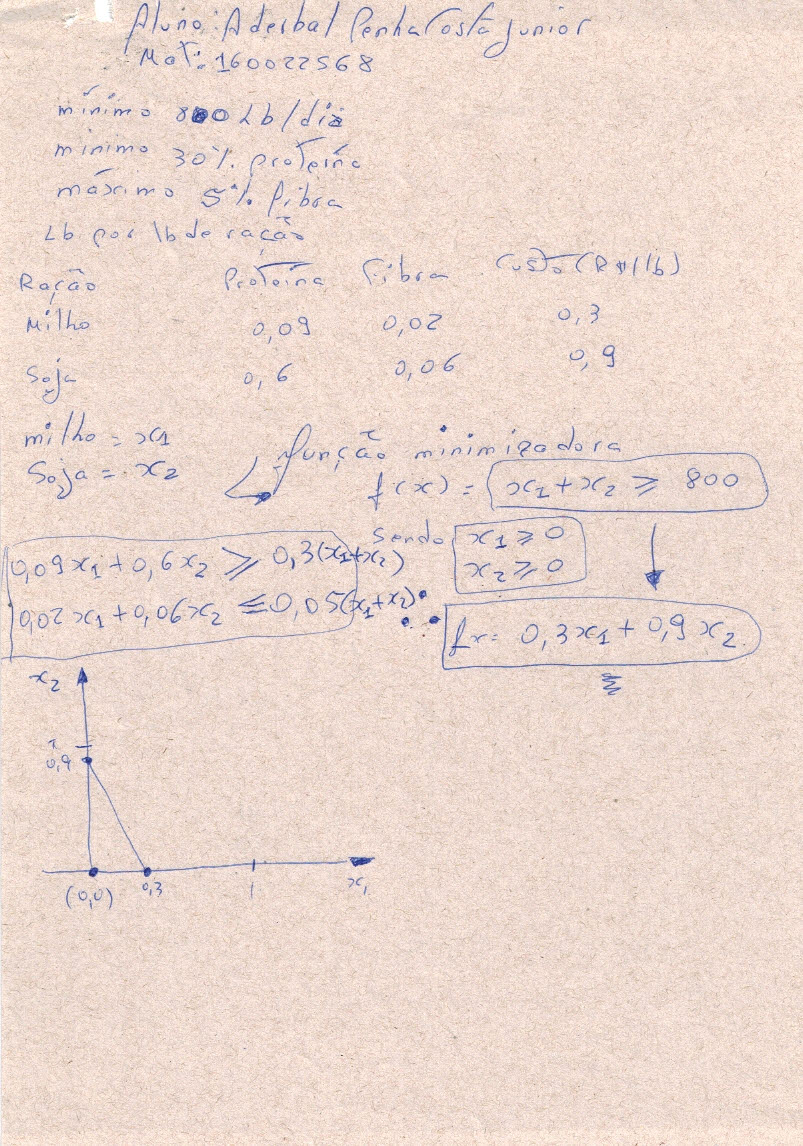 Aluno: Aderbal Penha Costa Junior
Mat: 160022568
mínimo 800 Lb/dia
mínimo 30% proteína
máximo 5% fibra
Lb por lb de ração
Ração Proteína Fibra Custo (R$/lb)
Milho 0,09 0,02 0,3
Soja 0,6 0,06 0,9
milho = x1
Soja = x2
função minimizadora
f(x) = x1 + x2 ≥ 800
Sendo x1 ≥ 0
x2 ≥ 0
0,09x1 + 0,6x2 ≥ 0,3(x1+x2)
0,02x1 + 0,06x2 ≤ 0,05(x1+x2)
∴ fx = 0,3x1 + 0,9x2
x2
1
0,9
(0,0) 0,3 1 x1